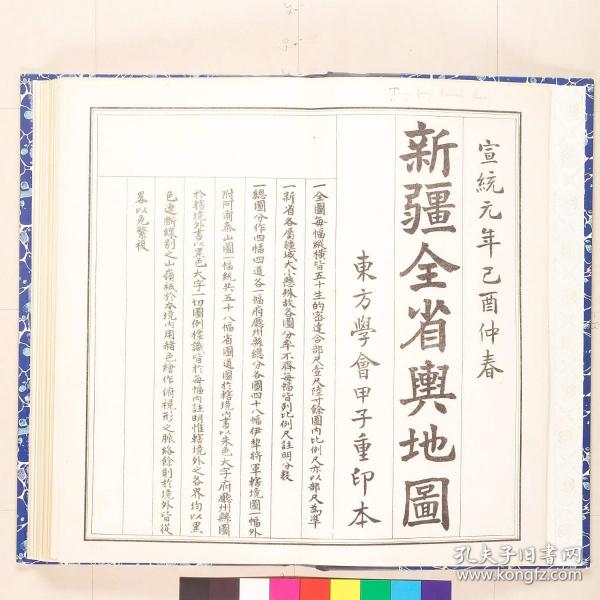 宣統元年己酉仲春
新疆全省輿地圖
東方學會甲子重印本
一全圖每幅縱橫皆五十生的密達合部尺壹尺陸寸餘圖內比例尺亦以部尺為準
一新省各屬疆域大小懸殊故各圖分率不齊每幅皆列比例尺註明分數
一總圖分作四幅四道各一幅府廳州縣總分各圖四十八幅伊犂將軍轄境圖一幅外
附阿爾泰山圖一幅統共五十八幅省圖道圖於轄境內書以朱色大字府廳州縣圖
於轄境外書以黑色大字一切圖例標識皆於每幅內註明惟轄境外之各界均以黑
色連斷線別之山嶺祗於本境內用赭色繪作俯視形之脈絡餘則於境外皆從
畧以免繁複
孔夫子旧书网
www.kongfz.com